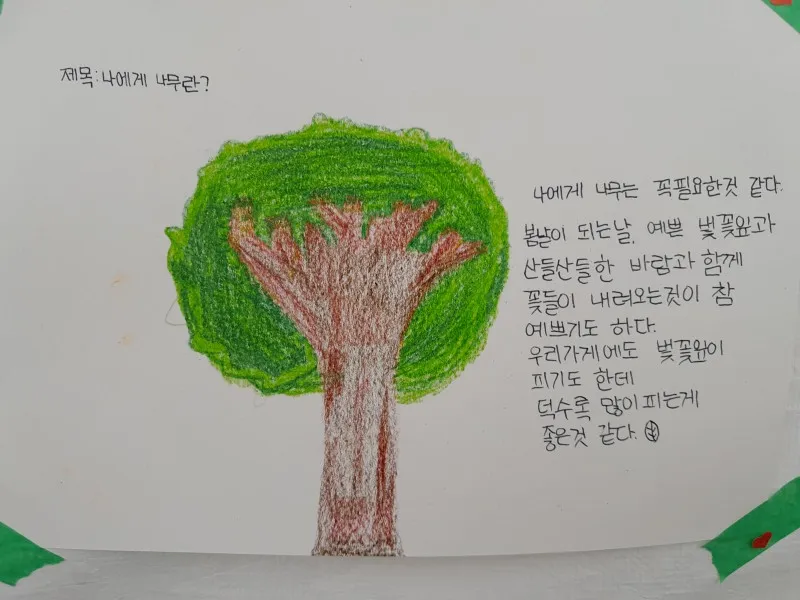 제목:나에게 나무란?
나에게 나무는 꼭필요한것 같다.
봄날이 되는날, 예쁜 벚꽃잎과
산들산들한 바람과 함께
꽃들이 내려오는것이 참
예쁘기도 하다.
우리가게에도 벚꽃잎이
피기도 한데
덕수록 많이피는게
좋은것 같다.